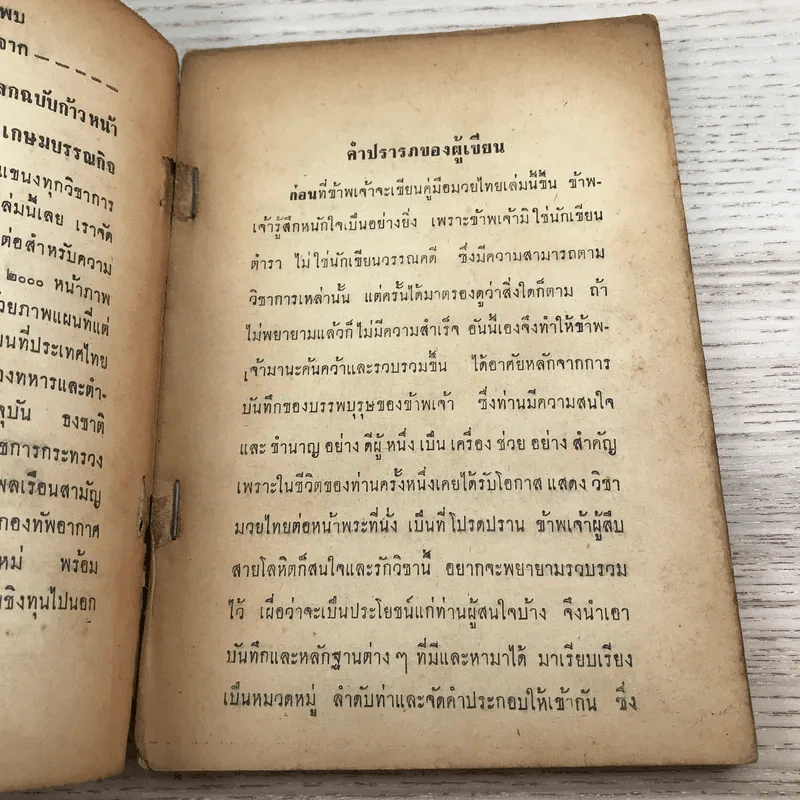 พบ
จาก -----
ลกฉบับก้าวหน้า
เกษมบรรณกิจ
แขนงทุกวิชาการ
ล่มนี้เลย เราจัด
ต่อสำหรับความ
๒๐๐๐ หน้าภาพ
วยภาพแผนที่แต่
นที่ประเทศไทย
องทหารและตำ-
จุบัน ธงชาติ
ชการกระทรวง
พลเรือนสามัญ
กองทัพอากาศ
หม่ พร้อม
ชิงทุนไปนอก
คำปรารภของผู้เขียน
ก่อนที่ข้าพเจ้าจะเขียนคู่มือมวยไทยเล่มนี้ขึ้น ข้าพ-
เจ้ารู้สึกหนักใจเป็นอย่างยิ่ง เพราะข้าพเจ้ามิใช่นักเขียน
ตำรา ไม่ใช่นักเขียนวรรณคดี ซึ่งมีความสามารถตาม
วิชาการเหล่านั้น แต่ครั้นได้มาตรองดูว่าสิ่งใดก็ตาม ถ้า
ไม่พยายามแล้วก็ไม่มีความสำเร็จ อันนี้เองจึงทำให้ข้าพ-
เจ้ามานะค้นคว้าและรวบรวมขึ้น ได้อาศัยหลักจากการ
บันทึกของบรรพบุรุษของข้าพเจ้า ซึ่งท่านมีความสนใจ
และ ชำนาญ อย่าง ดีผู้ หนึ่ง เป็น เครื่อง ช่วย อย่าง สำคัญ
เพราะในชีวิตของท่านครั้งหนึ่งเคยได้รับโอกาส แสดง วิชา
มวยไทยต่อหน้าพระที่นั่ง เป็นที่โปรดปราน ข้าพเจ้าผู้สืบ
สายโลหิตก็สนใจและรักวิชานี้ อยากจะพยายามรวบรวม
ไว้ เผื่อว่าจะเป็นประโยชน์แก่ท่านผู้สนใจบ้าง จึงนำเอา
บันทึกและหลักฐานต่าง ๆ ที่มีและหามาได้ มาเรียบเรียง
เป็นหมวดหมู่ ลำดับท่าและจัดคำประกอบให้เข้ากัน ซึ่ง